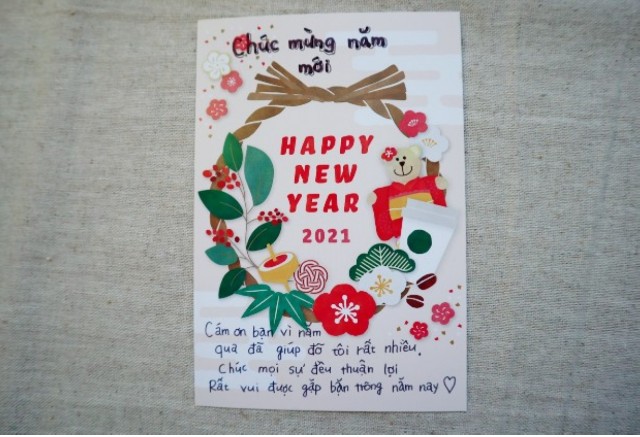 Chúc mừng năm
mới
HAPPY
NEW
YEAR
2021
Cám ơn bạn vì năm
qua đã giúp đỡ tôi rất nhiều.
Chúc mọi sự đều thuận lợi
Rất vui được gặp bạn trong năm nay ♡